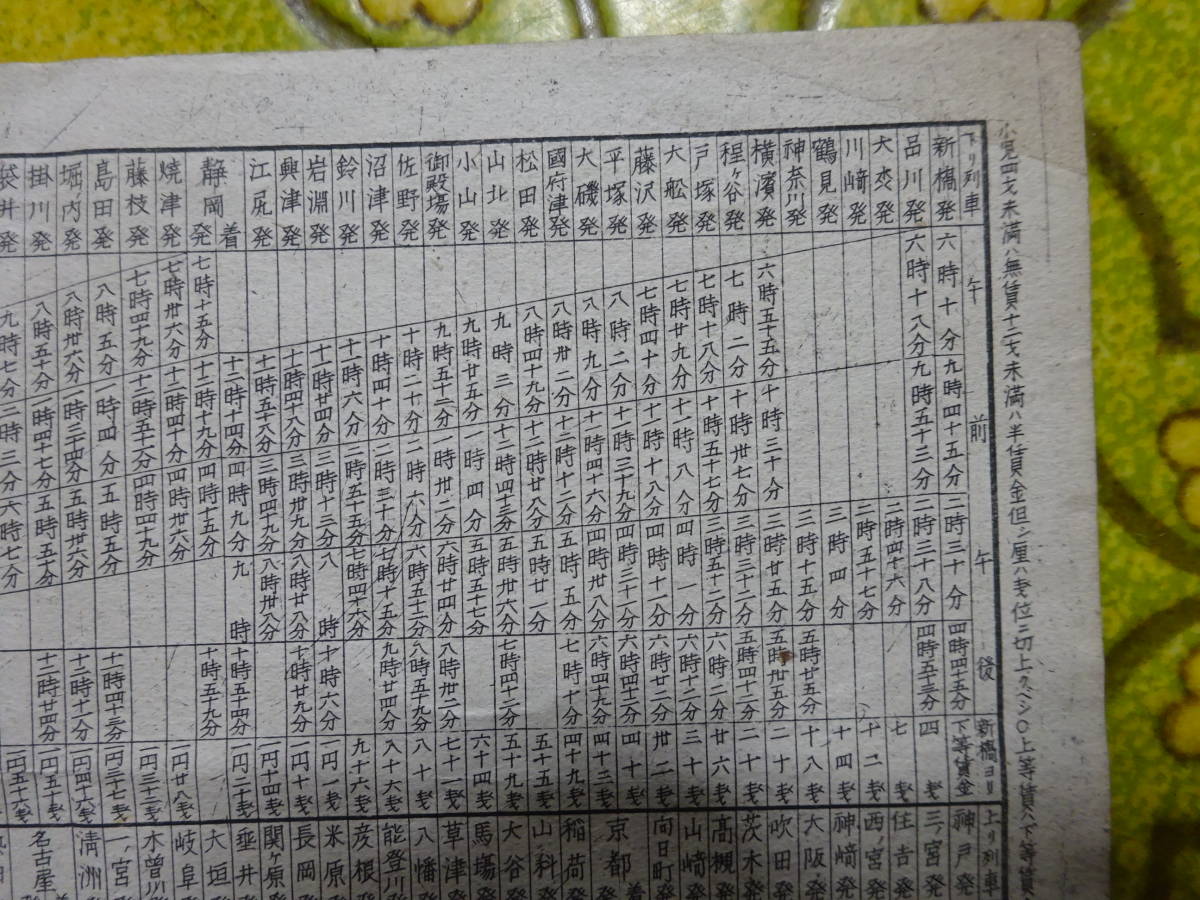 小児四才未満ハ無賃十二才未満ハ半賃金但シ厘ハ銭位ニ切上クベシ〇上等賃ハ下等賃
下り列車
午
前
午
後
新橋ヨリ下等賃金
新橋発
六時十分
九時四十五分
二時三十分
四時四十五分
品川発
六時十八分
九時五十三分
二時三十八分
四時五十三分
四銭
大森発
二時四十六分
七銭
川崎発
二時五十七分
十二銭
鶴見発
三時四分
十四銭
神奈川発
三時十五分
五時廿五分
十八銭
横濱発
六時五十五分
十時三十分
三時廿五分
五時卅五分
二十銭
程ヶ谷発
七時二分
十時卅七分
三時三十二分
五時四十二分
戸塚発
七時十八分
十時五十七分
三時五十二分
六時二分
廿六銭
大舩発
七時廿九分
十一時八分
四時一分
六時十二分
三十銭
藤沢発
七時四十分
十一時十八分
四時十一分
六時廿二分
卅二銭
平塚発
八時二分
十一時三十九分
六時四十二分
四十銭
大磯発
八時九分
十一時四十六分
四時卅八分
六時四十九分
四十二銭
國府津発
八時卅二分
十二時十二分
五時五分
七時十分
四十九銭
松田発
八時四十九分
十二時廿八分
五時廿一分
五十五銭
山北発
九時三分
十二時四十三分
五時卅六分
七時四十二分
五十九銭
小山発
九時廿五分
一時四分
五時五十七分
六十四銭
御殿場発
九時五十二分
一時卅二分
六時廿四分
八時卅二分
七十一銭
佐野発
十時二十分
二時六分
六時五十二分
八時五十九分
八十銭
沼津発
十時四十分
二時三十分
七時十五分
九時廿四分
八十六銭
鈴川発
十一時六分
二時五十五分
七時四十六分
九十六銭
岩淵発
十一時廿四分
三時十三分
八時
十時六分
一円銭
興津発
十一時四十六分
三時卅九分
八時廿八分
十時廿九分
江尻発
十一時五十六分
三時四十九分
八時卅八分
一円十四銭
静岡着
十二時十四分
四時九分
九時
十時五十四分
一円二十銭
発
七時十五分
十二時十九分
四時十五分
十時五十九分
焼津発
七時卅六分
十二時四十分
四時卅六分
一円廿八銭
藤枝発
七時四十九分
十二時五十二分
四時四十九分
一円三十二銭
島田発
八時五分
一時四分
五時五分
十一時四十三分
一円三十七銭
堀内発
八時卅六分
一時三十四分
五時卅六分
十二時十二分
一円四十六銭
掛川発
八時五十分
一時四十七分
五時五十分
十二時廿四分
一円五十銭
袋井発
九時七分
二時三分
六時七分
一円五十六銭
上り列車
神戸発
三ノ宮発
住吉発
西ノ宮発
神﨑発
大阪発
吹田発
茨木発
高槻発
山﨑発
向日町発
京都着
発
稲荷発
山科発
大谷発
馬場発
草津発
八幡発
能登川発
彦根発
米原発
長岡発
関ヶ原発
垂井発
大垣発
岐阜発
木曽川発
一ノ宮発
清洲発
名古屋着